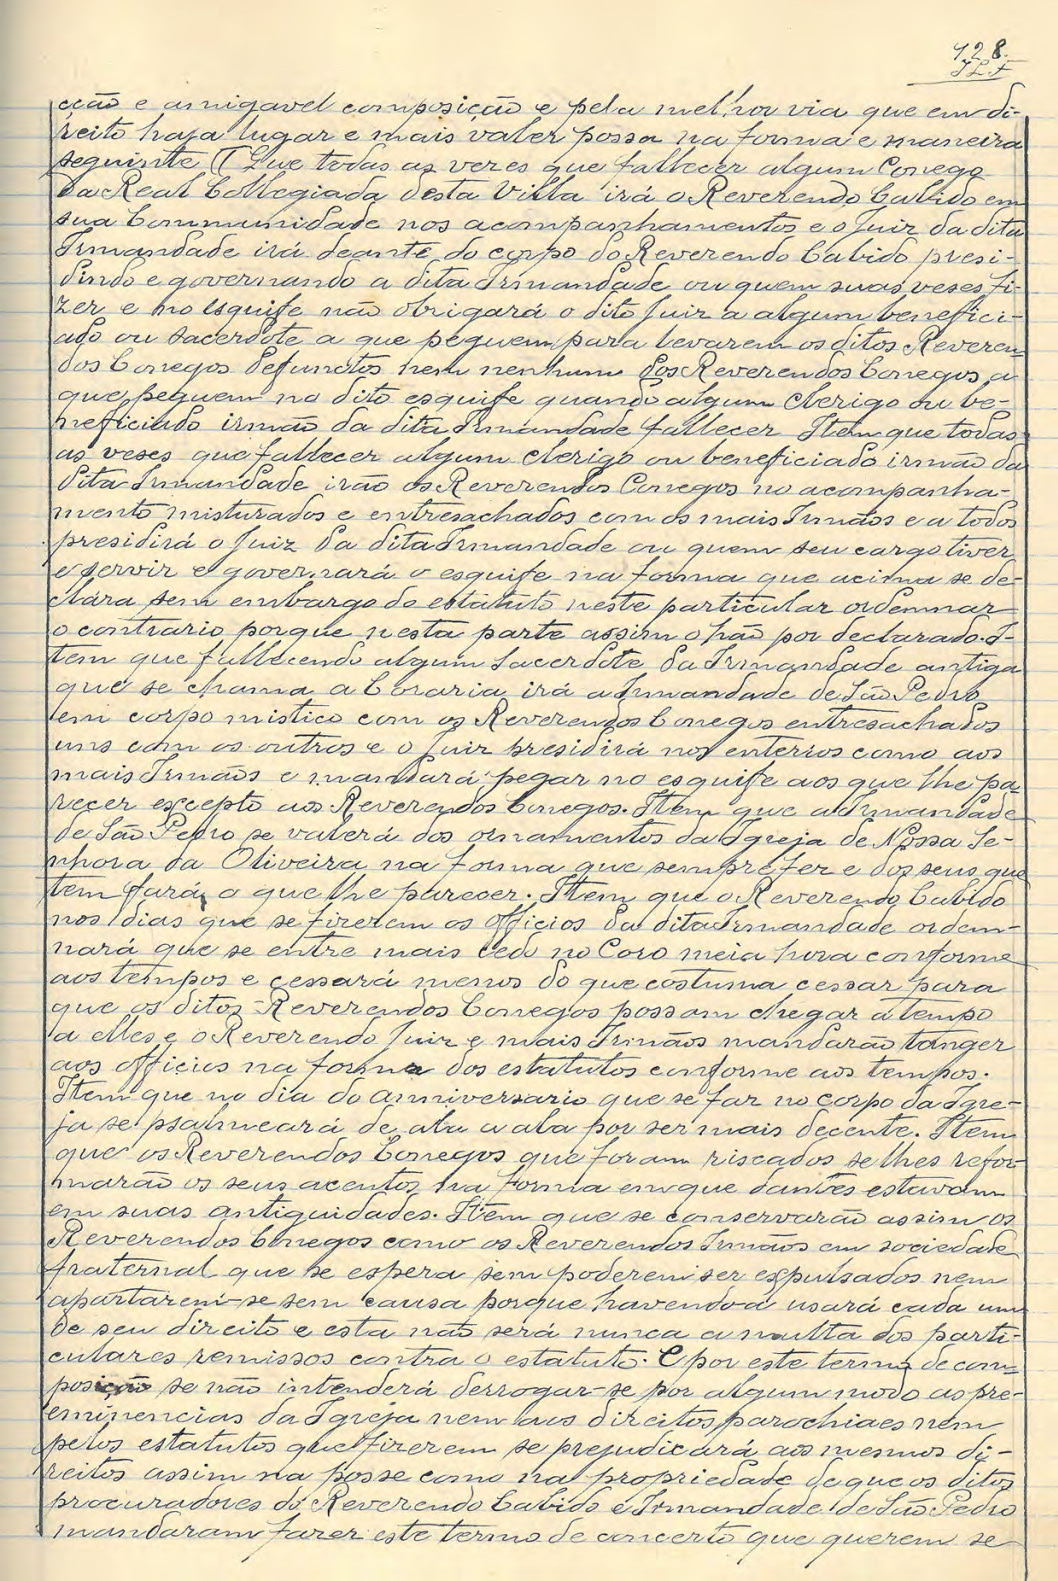 128.
cção e amigavel composição e pela melhor via que em di-
reito haja lugar e mais valer possa na forma e maneira
seguinte (Que todas as veres que fallecer algum Conego
da Real Collegiada desta Villa irá o Reverendo Cabido em
sua Communidade nos acompanhamentos e o Juiz da dita
Irmandade irá deante do corpo do Reverendo Cabido presi-
dindo e governando a dita Irmandade ou quem suas veses fi-
zer e no esquife não obrigará o dito Juiz a algum benefici-
ado ou sacerdote a que peguem para levarem os ditos Reveren
dos Conegos defunctos nem nenhum dos Reverendos Conegos a
que peguem no dito esquife quando algum Clerigo ou be-
neficiado irmão da dita Irmandade fallecer Item que todas
as veses que fallecer algum clerigo ou beneficiado irmão da
dita Irmandade irão os Reverendos Conegos no acompanha-
mento misturados e entresachados com os mais Irmãos e a todos
presidirá o Juiz da dita Irmandade ou quem seu cargo tiver
e servir e governará o esquife na forma que acima se de-
clára sem embargo do estatuto neste particular ordennar
o contrario porque nesta parte assim o hão por declarado. I-
tem que fallecendo algum sacerdote da Irmandade antiga
que se chama a Coraria irá a Irmandade de São Pedro
em corpo mistico com os Reverendos Conegos entresachados
uns com os outros e o Juiz presidirá nos enterros como aos
mais Irmãos e mandará pegar no esquife aos que lhe pa-
recer excepto aos Reverendos Conegos. Item que a Irmandade
de São Pedro se valerá dos ornamentos da Igreja de Nossa Se-
nhora da Oliveira na forma que sempre fez e dos seus que
tem fará o que lhe parecer. Item que o Reverendo Cabido
nos dias que se fizerem os officios da dita Irmandade ordem-
nará que se entre mais cedo no Coro meia hora conforme
aos tempos e cessará menos do que costuma cessar para
que os ditos Reverendos Conegos possam chegar a tempo
a elles e o Reverendo Juiz e mais Irmãos mandarão tanger
aos officios na forma dos estatutos conforme aos tempos.
Item que no dia do anniversario que se faz no corpo da Igre-
ja se psalmeará de ala a ala por ser mais decente. Item
que os Reverendos Conegos que foram riscados se lhes refor-
marão os seus acentos na forma em que dantes estavam
em suas antiguidades. Item que se conservarão assim os
Reverendos Conegos como os Reverendos Irmãos em sociedade
fraternal que se espera sem poderem ser expulsados nem
apartarem-se sem causa porque havendo-a usará cada um
de seu direito e esta não será nunca a multa dos parti-
culares remissos contra o estatuto. E por este termo de com-
posição se não intenderá derrogar-se por algum modo as pre-
eminencias da Igreja nem aos direitos parochiaes nem
pelos estatutos que fizerem se prejudicará aos mesmos di-
reitos assim na posse como na propriedade de que os ditos
procuradores do Reverendo Cabido e Irmandade de São Pedro
mandaram fazer este termo de concerto que querem se